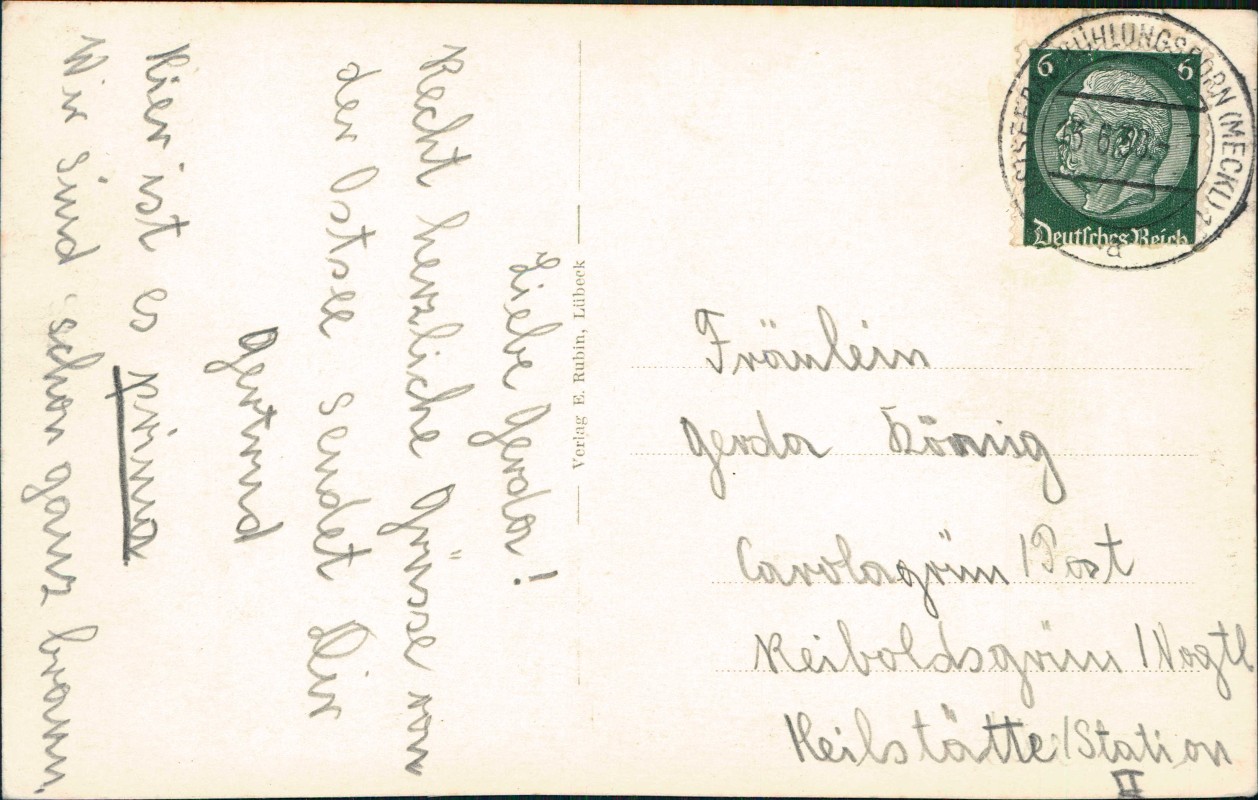 Liebe Gerda!
Recht herzliche Grüsse von
der Ostsee sendet Dir
Gertrud
Hier ist es prima
Wir sind schon ganz braun.
Verlag E. Rubin, Lübeck
KÜHLUNGSBORN (MECKL) 1
a
6 6
Deutsches Reich
Fräulein
Gerda König
Carolagrün / Post
Reiboldsgrün / Vogtl
Heilstätte / Station
II